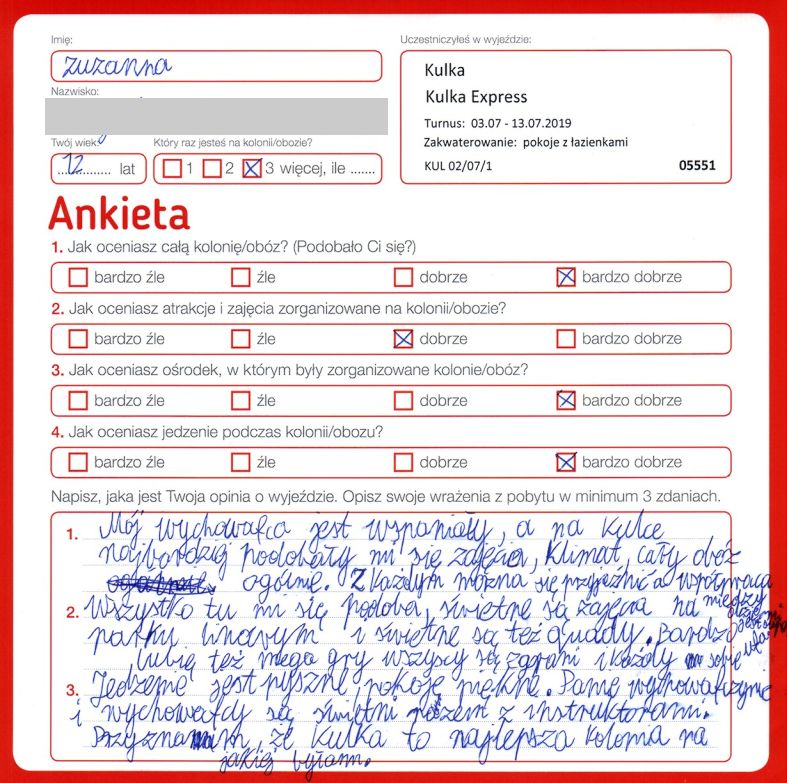 Imię:
Zuzanna
Nazwisko:
Twój wiek:
12 lat
Który raz jesteś na kolonii/obozie?
1 2 3 więcej, ile .......
Uczestniczyłeś w wyjeździe:
Kulka
Kulka Express
Turnus: 03.07 - 13.07.2019
Zakwaterowanie: pokoje z łazienkami
KUL 02/07/1 05551
Ankieta
1. Jak oceniasz całą kolonię/obóz? (Podobało Ci się?)
bardzo źle źle dobrze bardzo dobrze
2. Jak oceniasz atrakcje i zajęcia zorganizowane na kolonii/obozie?
bardzo źle źle dobrze bardzo dobrze
3. Jak oceniasz ośrodek, w którym były zorganizowane kolonie/obóz?
bardzo źle źle dobrze bardzo dobrze
4. Jak oceniasz jedzenie podczas kolonii/obozu?
bardzo źle źle dobrze bardzo dobrze
Napisz, jaka jest Twoja opinia o wyjeździe. Opisz swoje wrażenia z pobytu w minimum 3 zdaniach.
1. Mój wychowawca jest wspaniały, a na Kulce
najbardziej podobały mi się zajęcia, klimat, cały obóz
ogólnie. Z każdym można się przyjaźnić a współpraca
między
2. Wszystko tu mi się podoba, świetne są zajęcia na
parku linowym i świetne są też quady. Bardzo
lubię też mega gry wszyscy są zgrani i każdy
3. Jedzenie jest pyszne, pokoje piękne. Panie wychowawczynie
i wychowawcy są świetni razem z instruktorami.
Przyznam, że Kulka to najlepsza kolonia na
jakiej byłam.